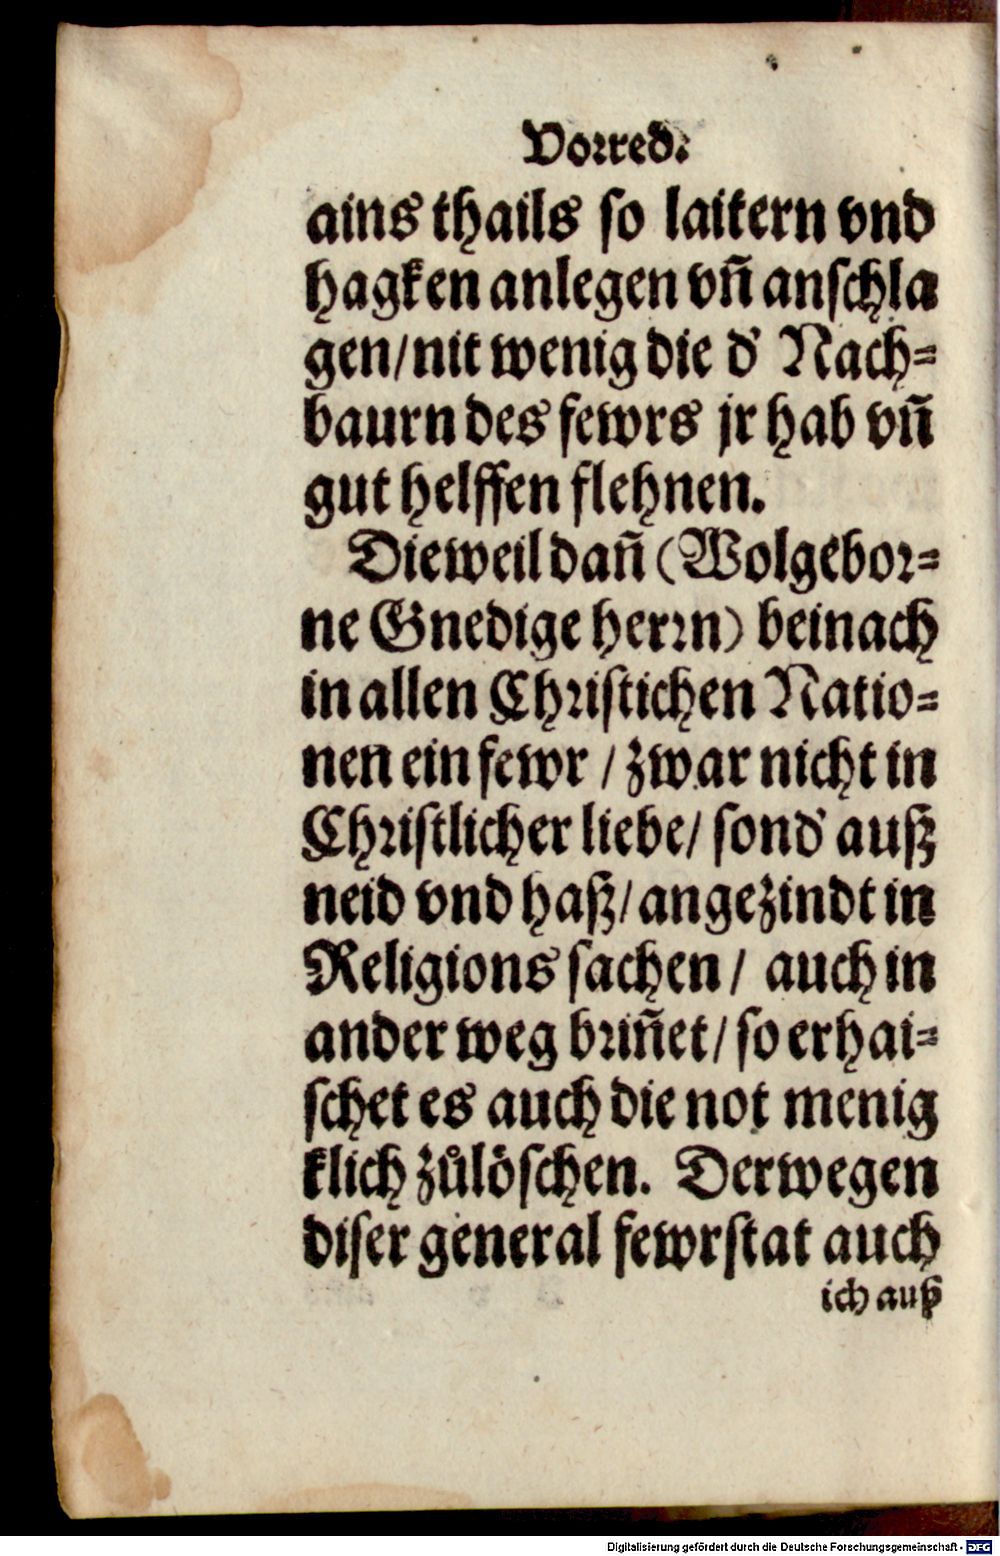 Vorred.
ains thails so laitern vnd
hagken anlegen vñ anschla
gen/nit wenig die d' Nach=
baurn des fewrs jr hab vñ
gut helffen flehnen.
Dieweil dañ (Wolgebor=
ne Gnedige herrn) beinach
in allen Christichen Natio=
nen ein fewr / zwar nicht in
Christlicher liebe/ sond' auß
neid vnd haß/ angezindt in
Religions sachen / auch in
ander weg briñet/ so erhai=
schet es auch die not menig
klich zůlöschen. Derwegen
diser general fewrstat auch
ich auß
Digitalisierung gefördert durch die Deutsche Forschungsgemeinschaft - DFG